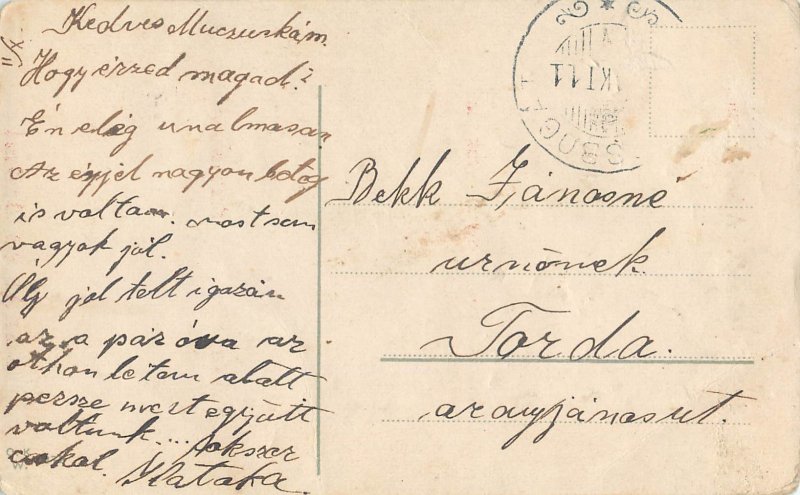 11/X
Kedves Muczuskám.
Hogy érzed magad?
Én elég unalmasan
Az éjjel nagyon beteg
is voltam. most sem
vagyok jól.
Oly jól telt igazán
az a pár óra az
othon létem alatt
persze mert együtt
voltunk.... sokszor
csokol. Kataka.
OKT 11
Bekk Jánosné
urnőnek
Torda.
aranyjánosut.